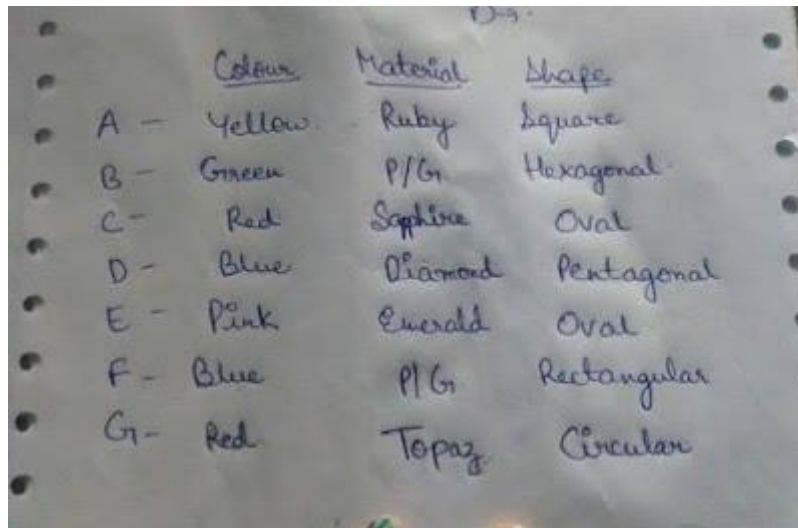 Colour Material Shape
A - Yellow. Ruby Square
B - Green P/G Hexagonal
C - Red Sapphire Oval
D - Blue Diamond Pentagonal
E - Pink Emerald Oval
F - Blue P/G Rectangular
G - Red Topaz Circular